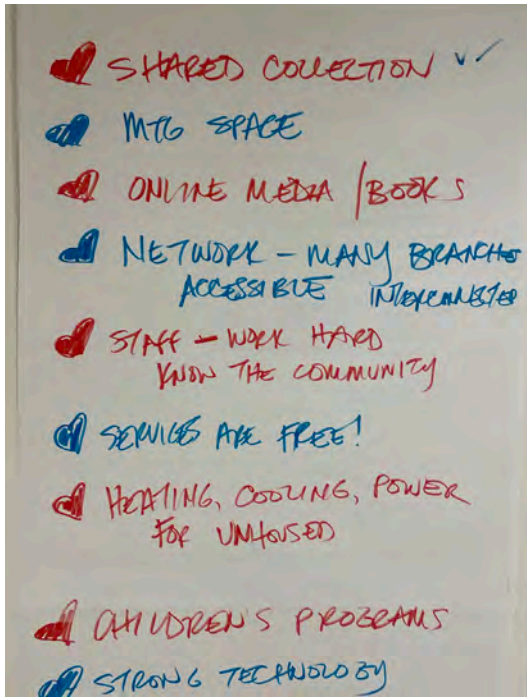 SHARED COLLECTION ✓✓
MTG SPACE
ONLINE MEDIA / BOOKS
NETWORK – MANY BRANCHES
ACCESSIBLE INTERCONNECTED
STAFF – WORK HARD
KNOW THE COMMUNITY
SERVICES ARE FREE!
HEATING, COOLING, POWER
FOR UNHOUSED
CHILDREN'S PROGRAMS
STRONG TECHNOLOGY